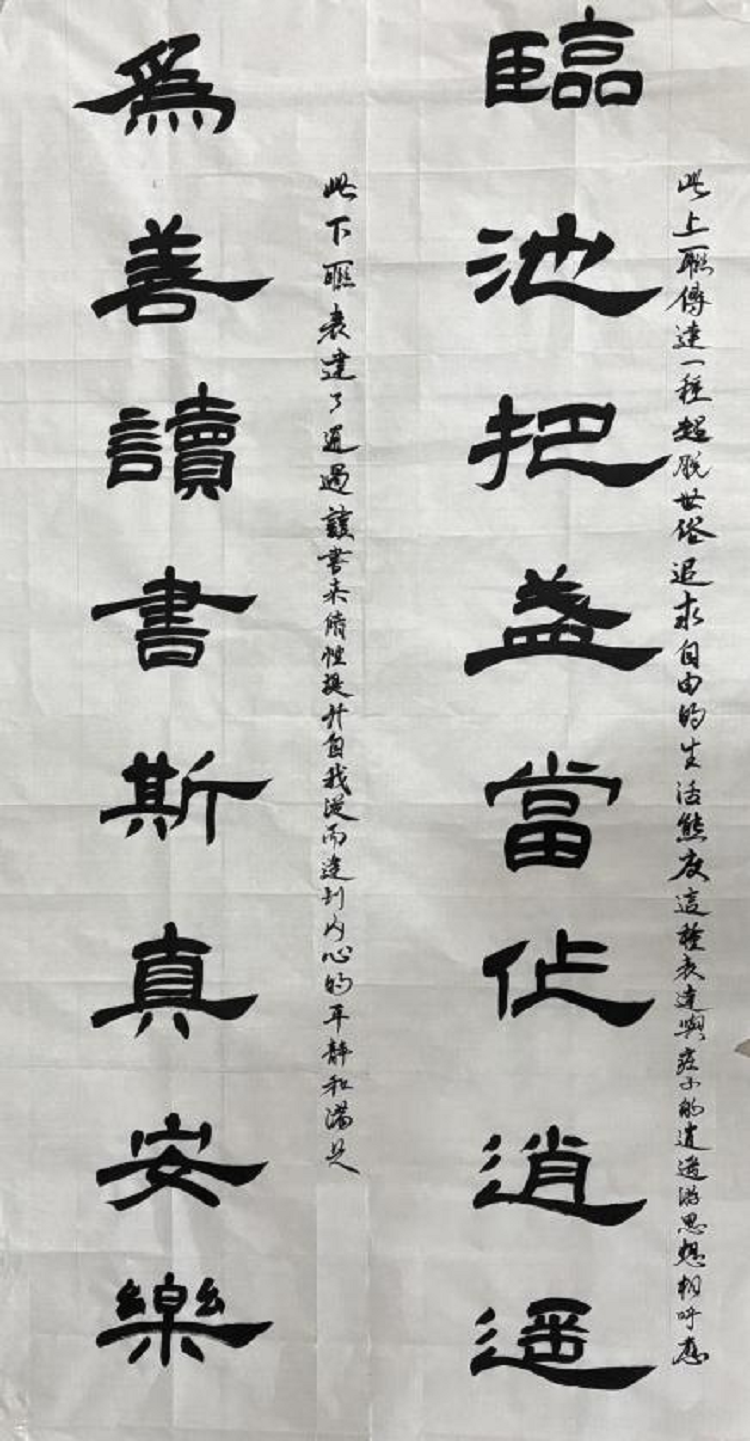 臨池把盞當作逍遥
此上聯傳達一種超脱世俗追求自由的生活態度這種表達與莊子的逍遥游思想相呼應
為善讀書斯真安樂
此下聯表達了通過讀書来修性提升自我從而達到内心的平静和滿足